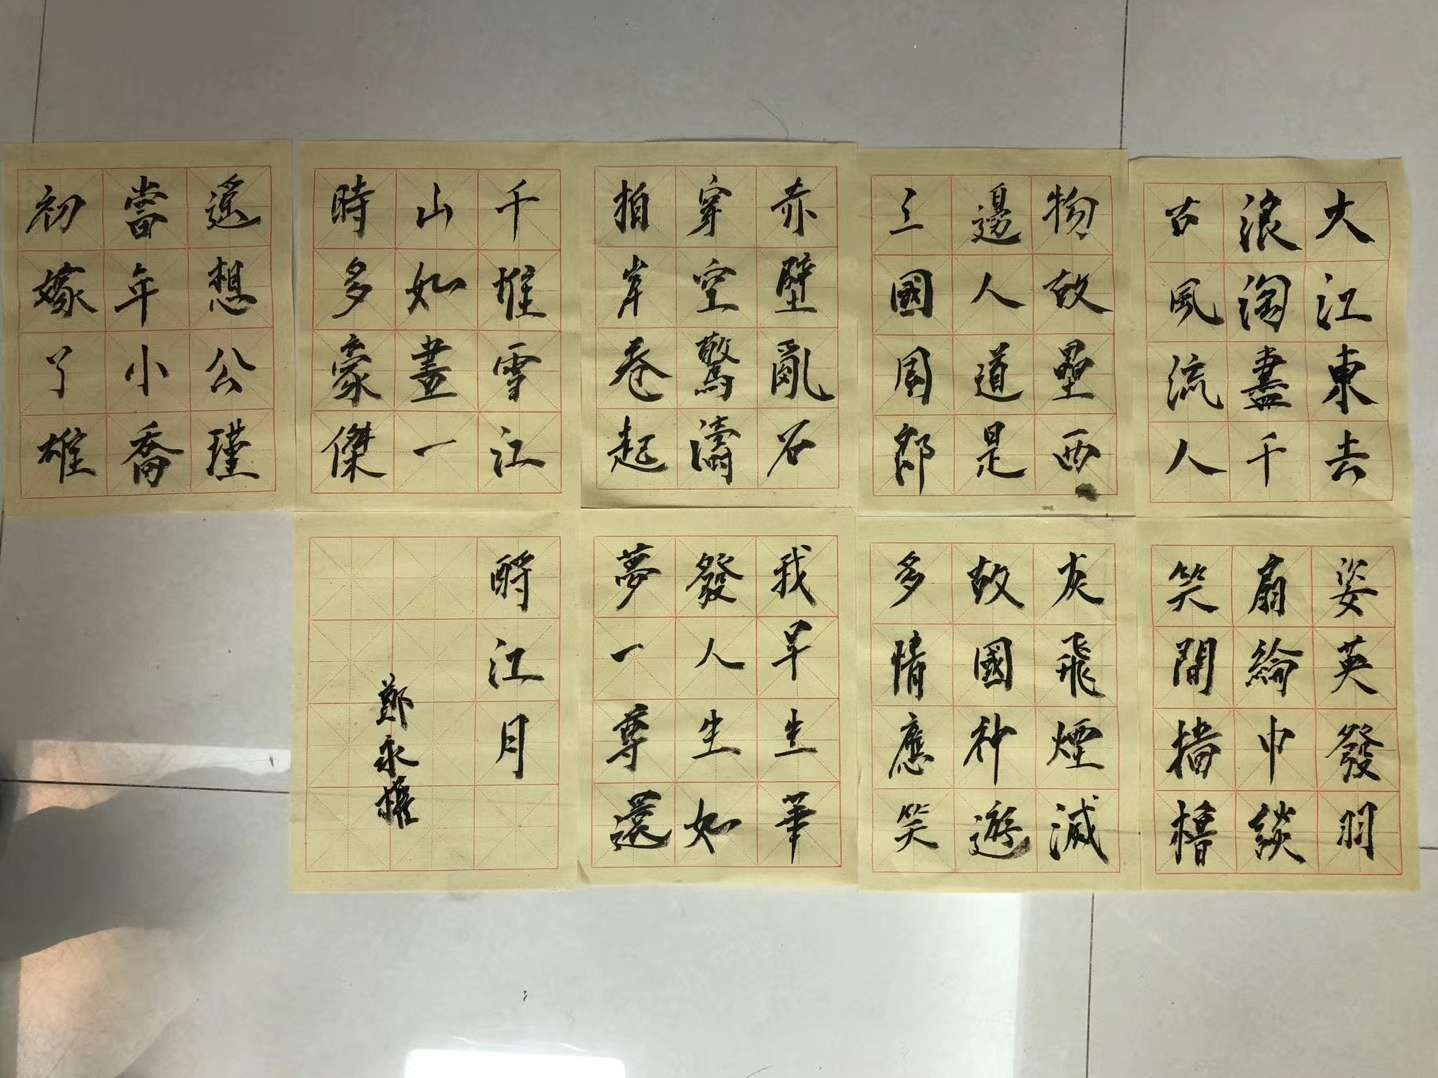 大江東去
浪淘盡千
古風流人
物故壘西
邊人道是
三國周郎
赤壁亂石
穿空驚濤
拍岸卷起
千堆雪江
山如畫一
時多豪傑
遙想公瑾
當年小喬
初嫁了雄
姿英發羽
扇綸巾談
笑間檣櫓
灰飛煙滅
故國神遊
多情應笑
我早生華
發人生如
夢一尊還
酹江月
鄭永權